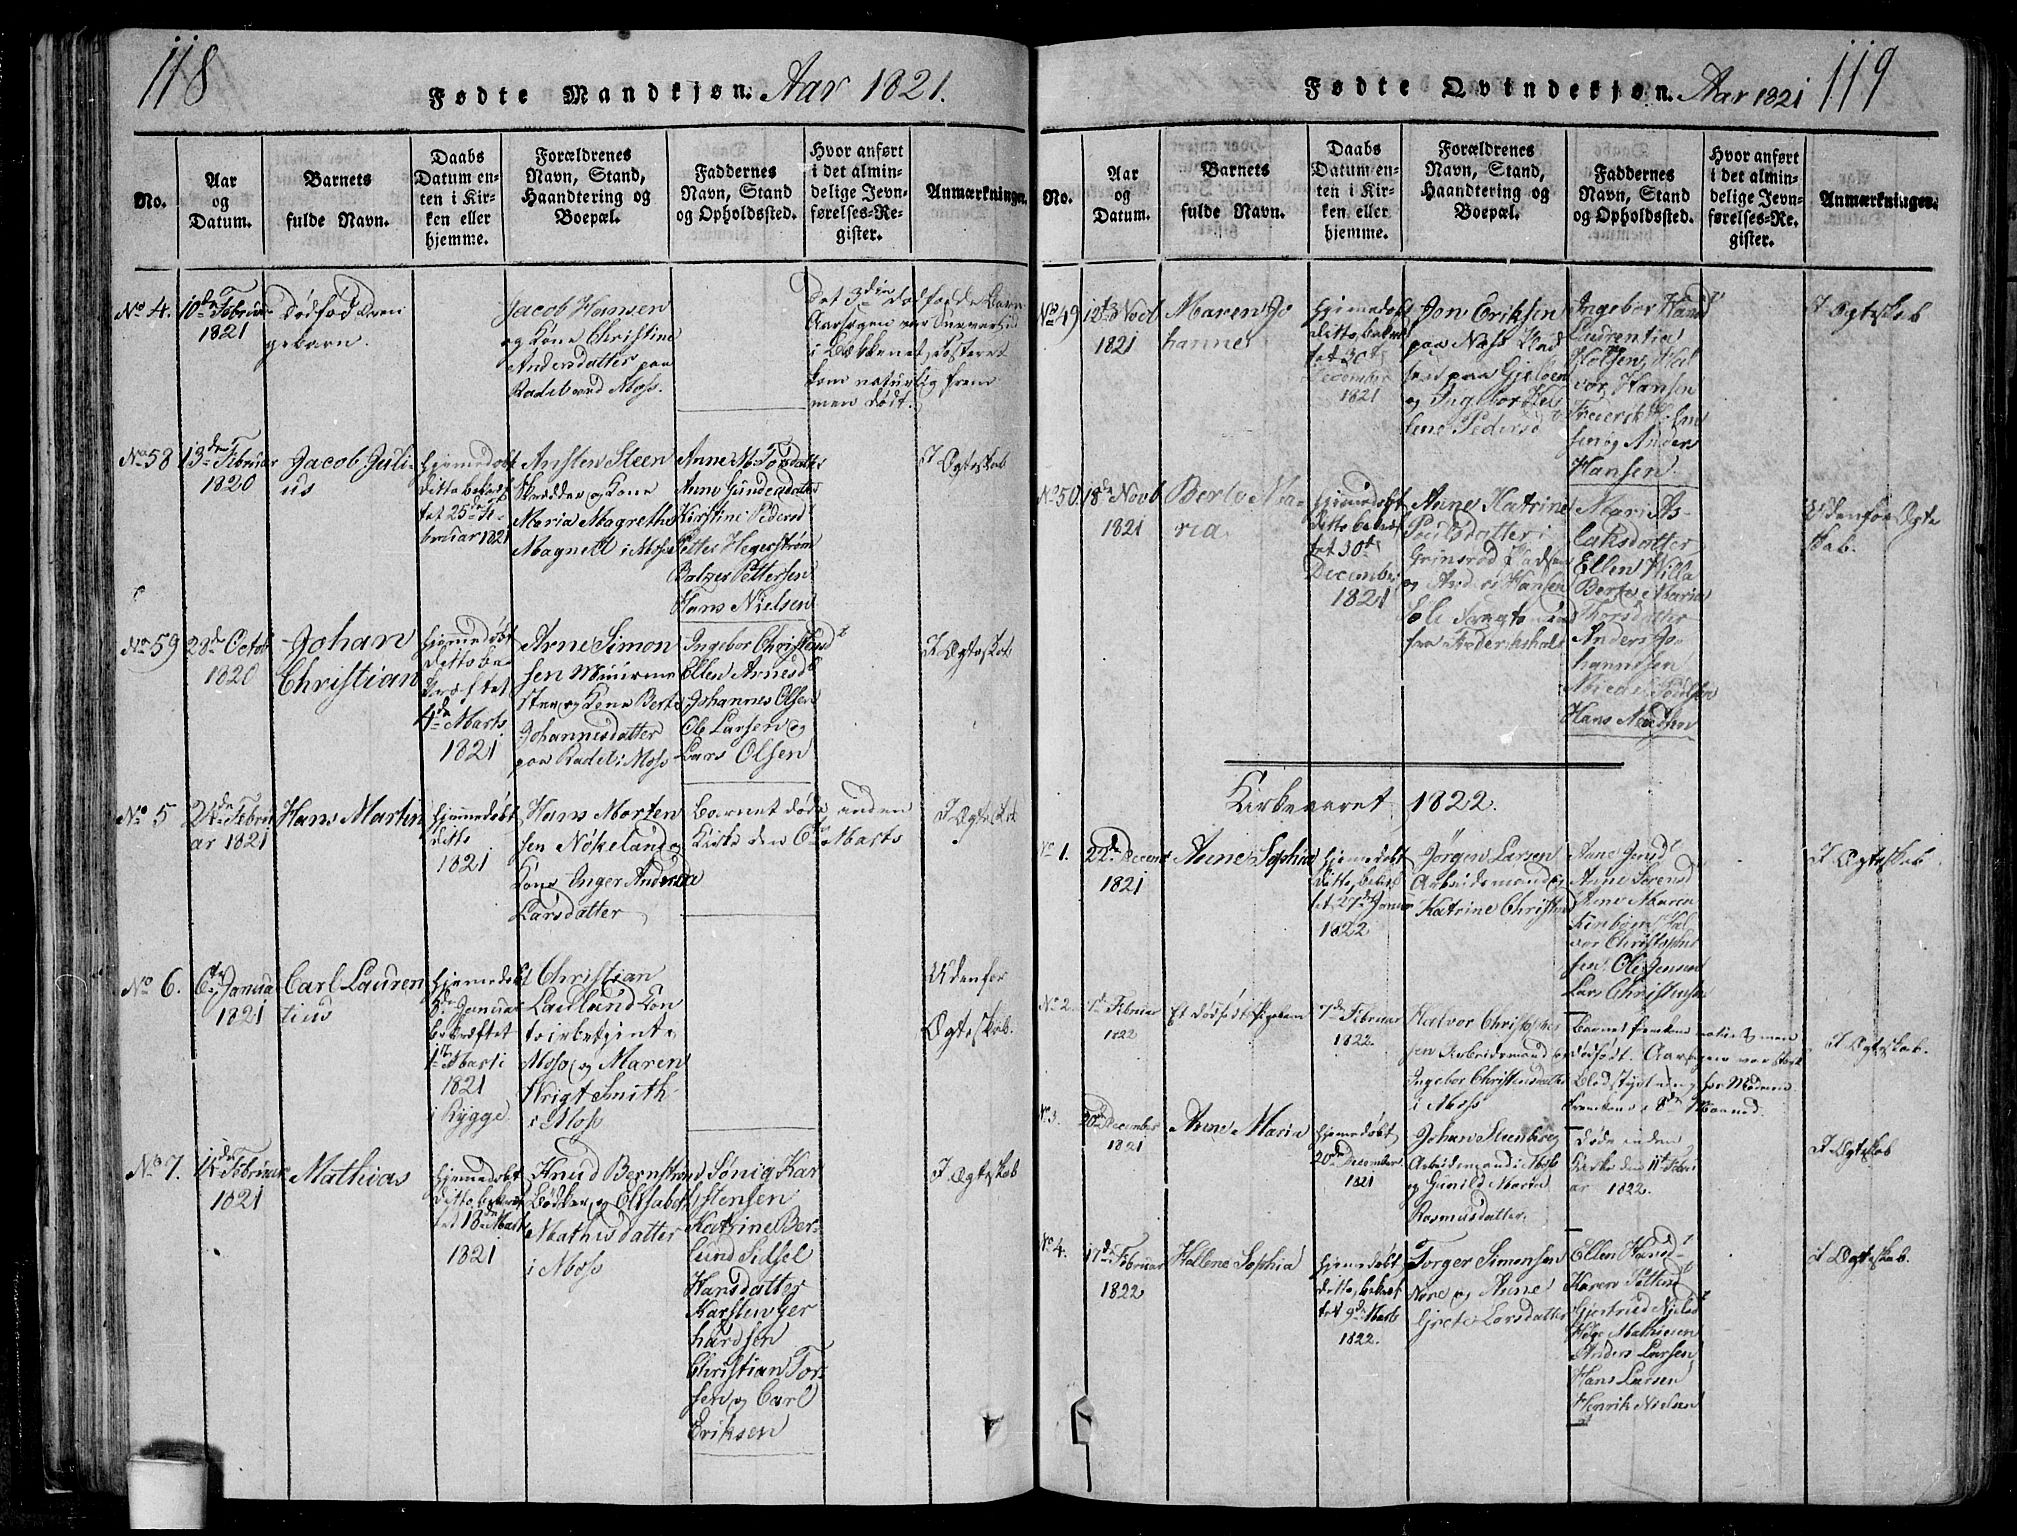 118
Fødte Mandkjøn. Aar 1821.
No.
Aar
og
Datum.
Barnets
fulde Navn.
Daabs
Datum en-
ten i Kir-
ken eller
hjemme.
Forældrenes
Navn, Stand,
Haandtering og
Boepæl.
Faddernes
Navn, Stand
og Opholdssted.
Hvor anført
i det almin-
delige Jevn-
førelses-Re-
gister.
Anmærkninger.
No 4.
10de Februar
1821
gebarn.
Jacob Hansen
og Kone Christine
Andersdatter paa
Radet ved Moss.
No 58
13de Februar
1820
Jacob Juli-
us
Hjemmedøbt
Ditto bekræf
tet 25de Fe-
bruar 1821
Ansten Steen
Skredder og Kone
Maria Magrethe
Magnell i Moss
Anne M. Torsdatter
Anne Gundersdatter
Kirstine Pedersd
Petter Hegerstrøm
Balzer Pettersen
Hans Nielsen
I Ægteskab
No 59
28de Octob
1820
Johan
Christian
Hjemmedøbt
Ditto be-
kræftet
4de Marts
1821
Arne Simon
sen Muurme
ster og Kone Berte
Johannisdatter
paa Radet i Moss
Ingebor Christensdt
Ellen Arnesdt
Johannes Olsen
Ole Larsen og
Lars Olsen
I Ægteskab
No 5
24de Febru
ar 1821
Hans Martin
Hjemmedøbt
Ditto
1821
Hans Morten
sen Nökeland og
Kone Inger Andrea
Larsdatter
Barnet døde inden
Kirke den 6te Marts
I Ægteskab
No 6.
6te Janua
1821
Carl Lauren
tius
Hjemmedøbt
8de Januar
bekræftet
1ste Marti
1821
i Rygge
Christian
Laulund Con
toirbetjent i
Moss og Maren
Wrigt Smith
i Moss
Udenfor
Ægteskab.
No 7.
14de Februar
1821
Mathias
Hjemmedøbt
Ditto bekræf
tet 18de Marts
1821
Knud Bernstrøm
Bødker og Elisabeth
Mathisdatter
i Moss
Sönig Kar
stensen
Katrine Ber-
lund Sidsel
Hansdatter
Karsten Ger
hardsen
Christian Tor-
sen og Carl
Eriksen
I Ægteskab
119
Fødte Qvindekjøn. Aar 1821
No.
Aar
og
Datum.
Barnets
fulde Navn.
Daabs
Datum en-
ten i Kir-
ken eller
hjemme.
Forældrenes
Navn, Stand,
Haandtering og
Boepæl.
Faddernes
Navn, Stand
og Opholdssted.
Hvor anført
i det almin-
delige Jevn-
førelses-Re-
gister.
Anmærkninger.
No 49
1821
Maren Jo
hanne
Hjemmedøbt
Ditto bekræf
tet 30te
December
1821
Jon Eriksen
og Ingebor Hel
lene Pedersd
Ingebor Hansdt
Laurentia
Holsen, Hal
vor Hansen
sen og Anders
Hansen
I Ægteskab
No 50.
18de Novb
1821
Berte Ma-
ria
Hjemmedøbt
Ditto bekræf
tet 30te
December
1821
Anne Katrine
Poulsdatter i
Grimsrød
og Anders Hansen
Mari As-
laksdatter
Ellen Willa
Berte Maria
Thorsdatter
Anders Jo
hannesen
Hans Madsen
Udenfor Ægte
skab.
Kirkeaaret 1822.
No 1.
22de Decemb
1821
Anne Sophia
Hjemmedøbt
Ditto, bekræf
tet 27de Januar
1822
Jörgen Larsen
Arbeidsmand og
Katrine Christensd
Anne Jensdt
Anne Sörensd
Anne Maren
Hal
vor Christopher
sen, Ole Jensen
Lars Christensen
I Ægteskab
No 2.
7de Februar
1822
Et dødfødt Pigebarn
7de Februar
1822.
Halvor Christopher
sen Arbeidsmand og
Ingebor Christensdatter
i Moss
Barnet fremkom naturlig men
dødfødt. Aarsagen var stærk
Blodstyrtning hos Moderen
8de Maaned.
I Ægteskab.
No 3.
20de December
1821
Anne Maria
Hjemmedøbt
20de December
1821
Johan Steenberg
Arbeidsmand i Moss
og Gunild Maria
Rasmusdatter.
Døde inden
Kirke den 11te Febru
ar 1822.
I Ægteskab
No 4.
17de Februar
1822
Hellene Sophia
Hjemmedøbt
Ditto, bekræf
tet 9de Marts
1822.
Torger Simensen
Nore og Anne
Grete Larsdatter
Ellen Hansdt
Karen Pettersd
Gjertrud Nielsdt
Helge Mathiesen
Anders Larsen
Hans Larsen
Henrik Nielsen
I Ægteskab.